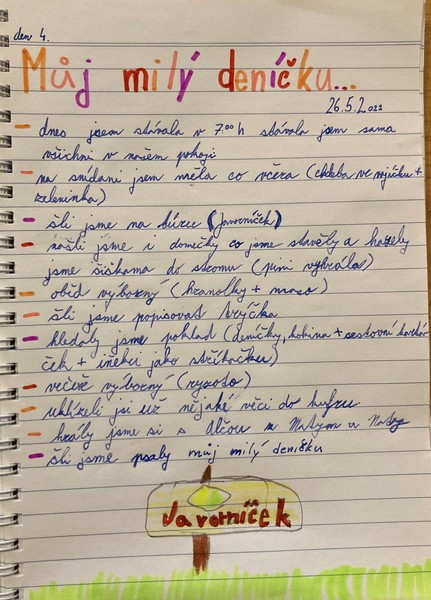 den 4.
Můj milý deníčku...
26.5.2021
dnes jsem stávala v 7:00 h stávala jsem sama
všichni v našem pokoji
na snídani jsem měla co včera (chleba ve vajíčku +
zeleninka)
šli jsme na túru (Javorníček)
našli jsme i domečky co jsme stavěly a házely
jsme šiškama do stromu (vyhrála)
oběd výborný (hranolky + maso)
šli jsme popisovat trička
hledaly jsme poklad (deníčky, + cestovní kartáč
ček + jako stříkačku)
večeře výborný (ryzoto)
uklízeli jsi už nějaké věci do kufru
hrály jsme si s a
šli jsme psaly můj milý deníčku
Javorníček